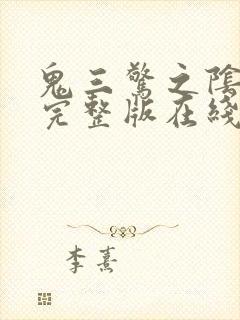 鬼三驚之陰
完整版在綫
李熹